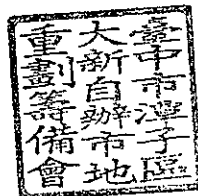 臺中市潭子區
大新自辦市地
重劃籌備會